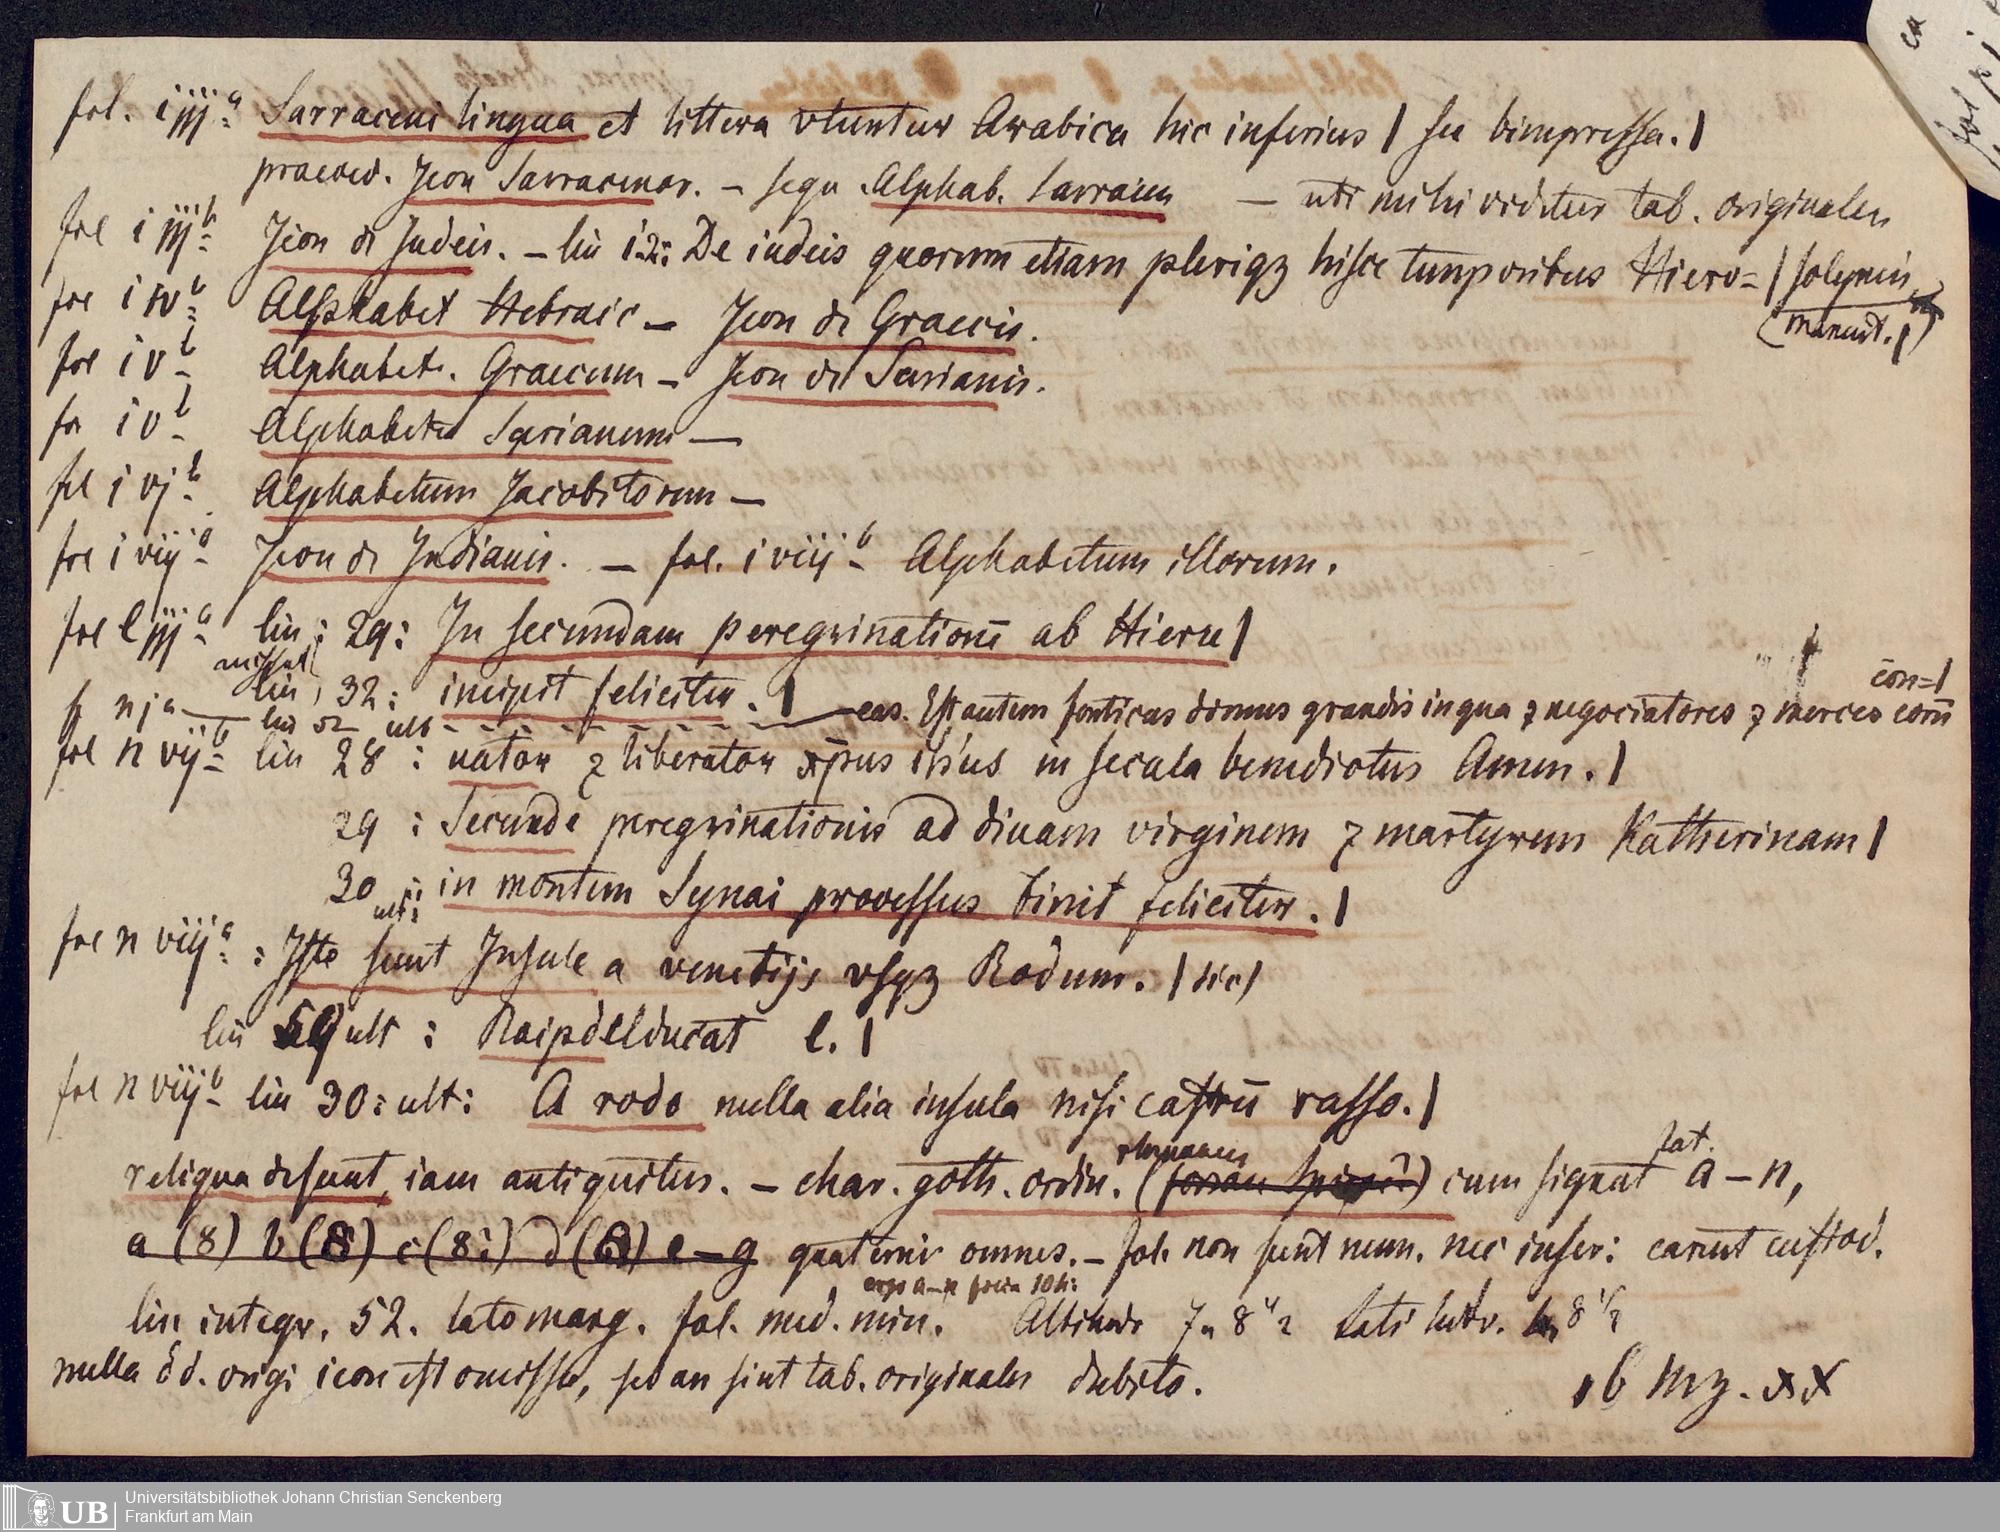 fol. i iij a Sarraceni lingua et littera vtuntur Arabica hic inferius | impressa. |
praeced. Jcon Sarracenor. – sequ. Alphab. Sarracen – uti mihi videtur tab. originalem
fol i iij b Jcon de Judeis. – lin i.2: De iudeis quorum etiam pleriqz hisce temporibus Hiero= | solymis
(manent. |)
fol i iv b Alphabet Hebraic – Jcon de Graecis.
fol i v b Alphabet. Graecum – Jcon de Surianis.
fol i v b Alphabet Surianum –
fol i vj b Alphabetum Jacobitorum –
fol i viij a Jcon de Indianis. – fol. i viij b Alphabetum illorum.
fol l iij a lin: 29: In secundam peregrinationē ab Hieru |
lin, 32: incipit feliciter. |
f nj a lin 52 ult eas. Est autem fonticus domus grandis in qua ⁊ negociatores ⁊ merces eorū con= |
fol n vij b lin 28: nator ⁊ liberator xp̄us ih'us in secula benedictus Amen. |
29: Secunde peregrinationis ad diuam virginem ⁊ martyrem Katherinam |
30 ult: in montem Synai processus finit feliciter. |
fol n viij a: Iste sunt Insule a venetijs vsqz Rodum. | hic |
lin 59 ult: Raipdelducat l. |
fol n viij b lin 30: ult: A rodo nulla alia insula nisi castrū rasso. |
reliqua desunt, iam antiquitus. – char. goth. ordin. (forsan) cum signat lat. a – n,
a (8) b (8) c (8) d (6) e – g quaterni omnes. – fol. non sunt num. nec inscr: carent custod.
ergo a–n folia 104:
lin integr. 52. lato marg. fol. med. min. Altitudo 7 8 1/2 8 1/2
nulla ed. origi icon est omissa, sed an sint tab. originalem dubito.
b mz. xx
Universitätsbibliothek Johann Christian Senckenberg
Frankfurt am Main
UB